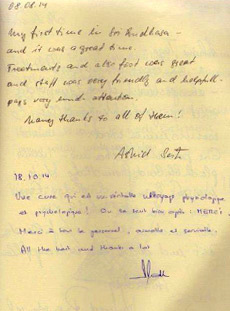 08.08.14
My first time in Sri Budhasa -
and it was a great time.
Treatments and also food was great
and staff was very friendly and helpfull -
pays very much attention.
Many thanks to all of them!
Astrid
18.10.14
Une cure qui est un véritable nettoyage physiologique
et psychologique! On se sent bien après: MERCI
Merci à tout le personnel, accueille et serviable.
All the best and thanks a lot